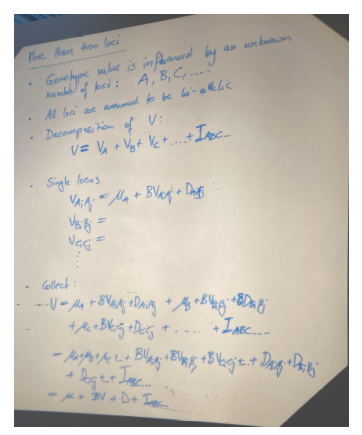 More than two loci
• Genotypic value is influenced by an unknown
number of loci: A, B, C, ....
• All loci are assumed to be bi-allelic
• Decomposition of V:
V = V_A + V_B + V_C + .... + I_ABC...
• Single locus
V_AiAj = μ_A + BV_AiAj + D_AiAj
V_BiBj =
V_CiCj =
⋮
• Collect:
V = μ_A + BV_AiAj + D_AiAj + μ_B + BV_BiBj + D_BiBj
+ μ_C + BV_CiCj + D_CiCj + ..... + I_ABC....
= μ_A + μ_B + μ_C + .. + BV_AiAj + BV_BiBj + BV_CiCj + .. + D_AiAj + D_BiBj
+ D_CiCj + .. + I_ABC...
= μ + BV + D + I_ABC...